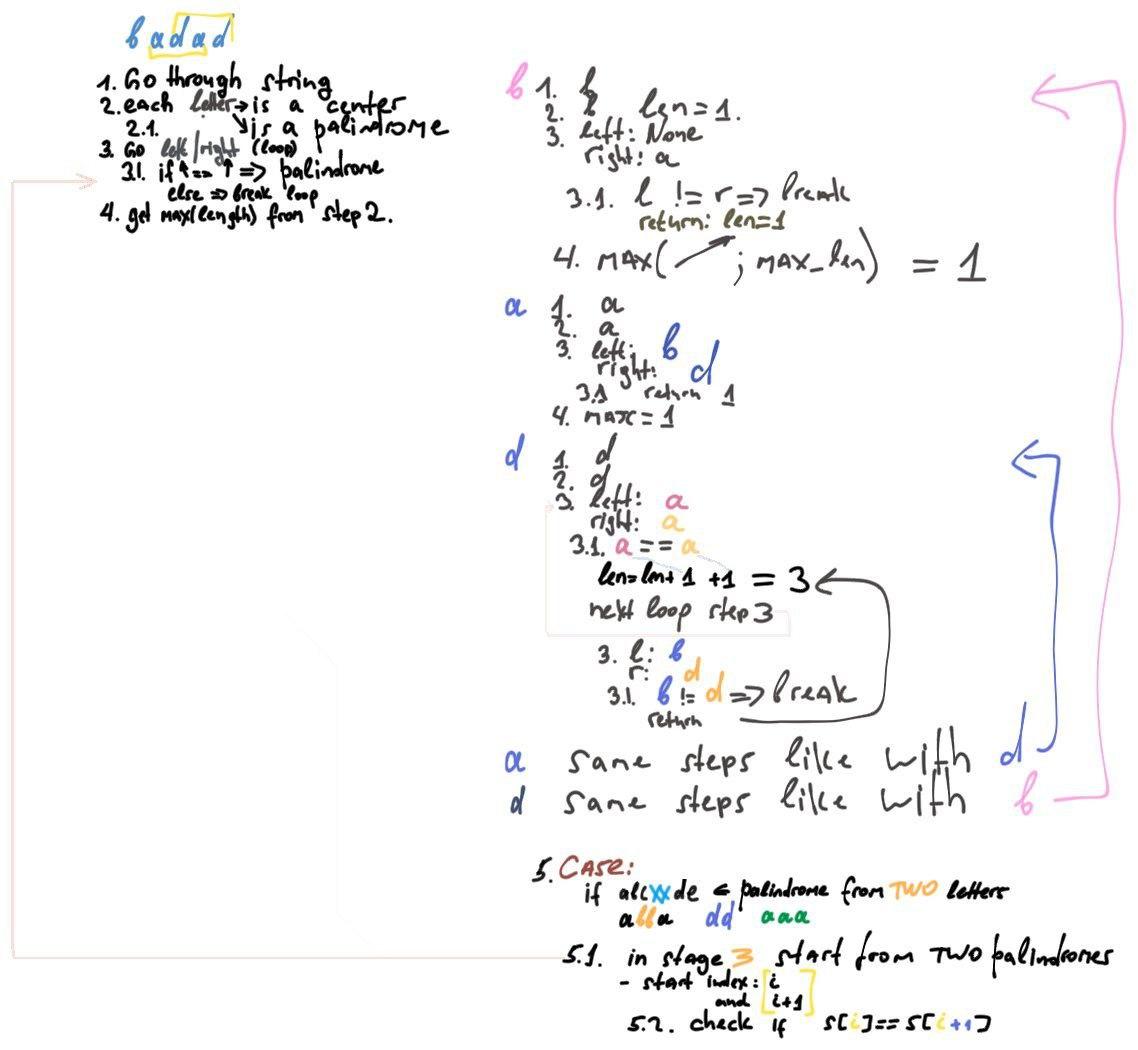 badad
1. Go through string
2. each letter → is a center
2.1. ↘ is a palindrome
3. Go left/right (loop)
3.1. if ↑ == ↑ => palindrome
else => break loop
4. get max(length) from step 2.
b 1. b
2. b len=1.
3. left: None
right: a
3.1. l != r => break
return: len=1
4. MAX( ; MAX_len) = 1
a 1. a
2. a
3. left: b
right: d
3.1 return 1
4. max = 1
d 1. d
2. d
3. left: a
right: a
3.1. a == a
len=len+1 +1 = 3
next loop step 3
3. l: b
r: d
3.1. b != d => break
return
a same steps like with d
d same steps like with b
5. CASE:
if abcxxde ← palindrome from TWO letters
abba dd aaa
5.1. in stage 3 start from TWO palindromes
- start index: i
and i+1
5.2. check if s[i]==s[i+1]